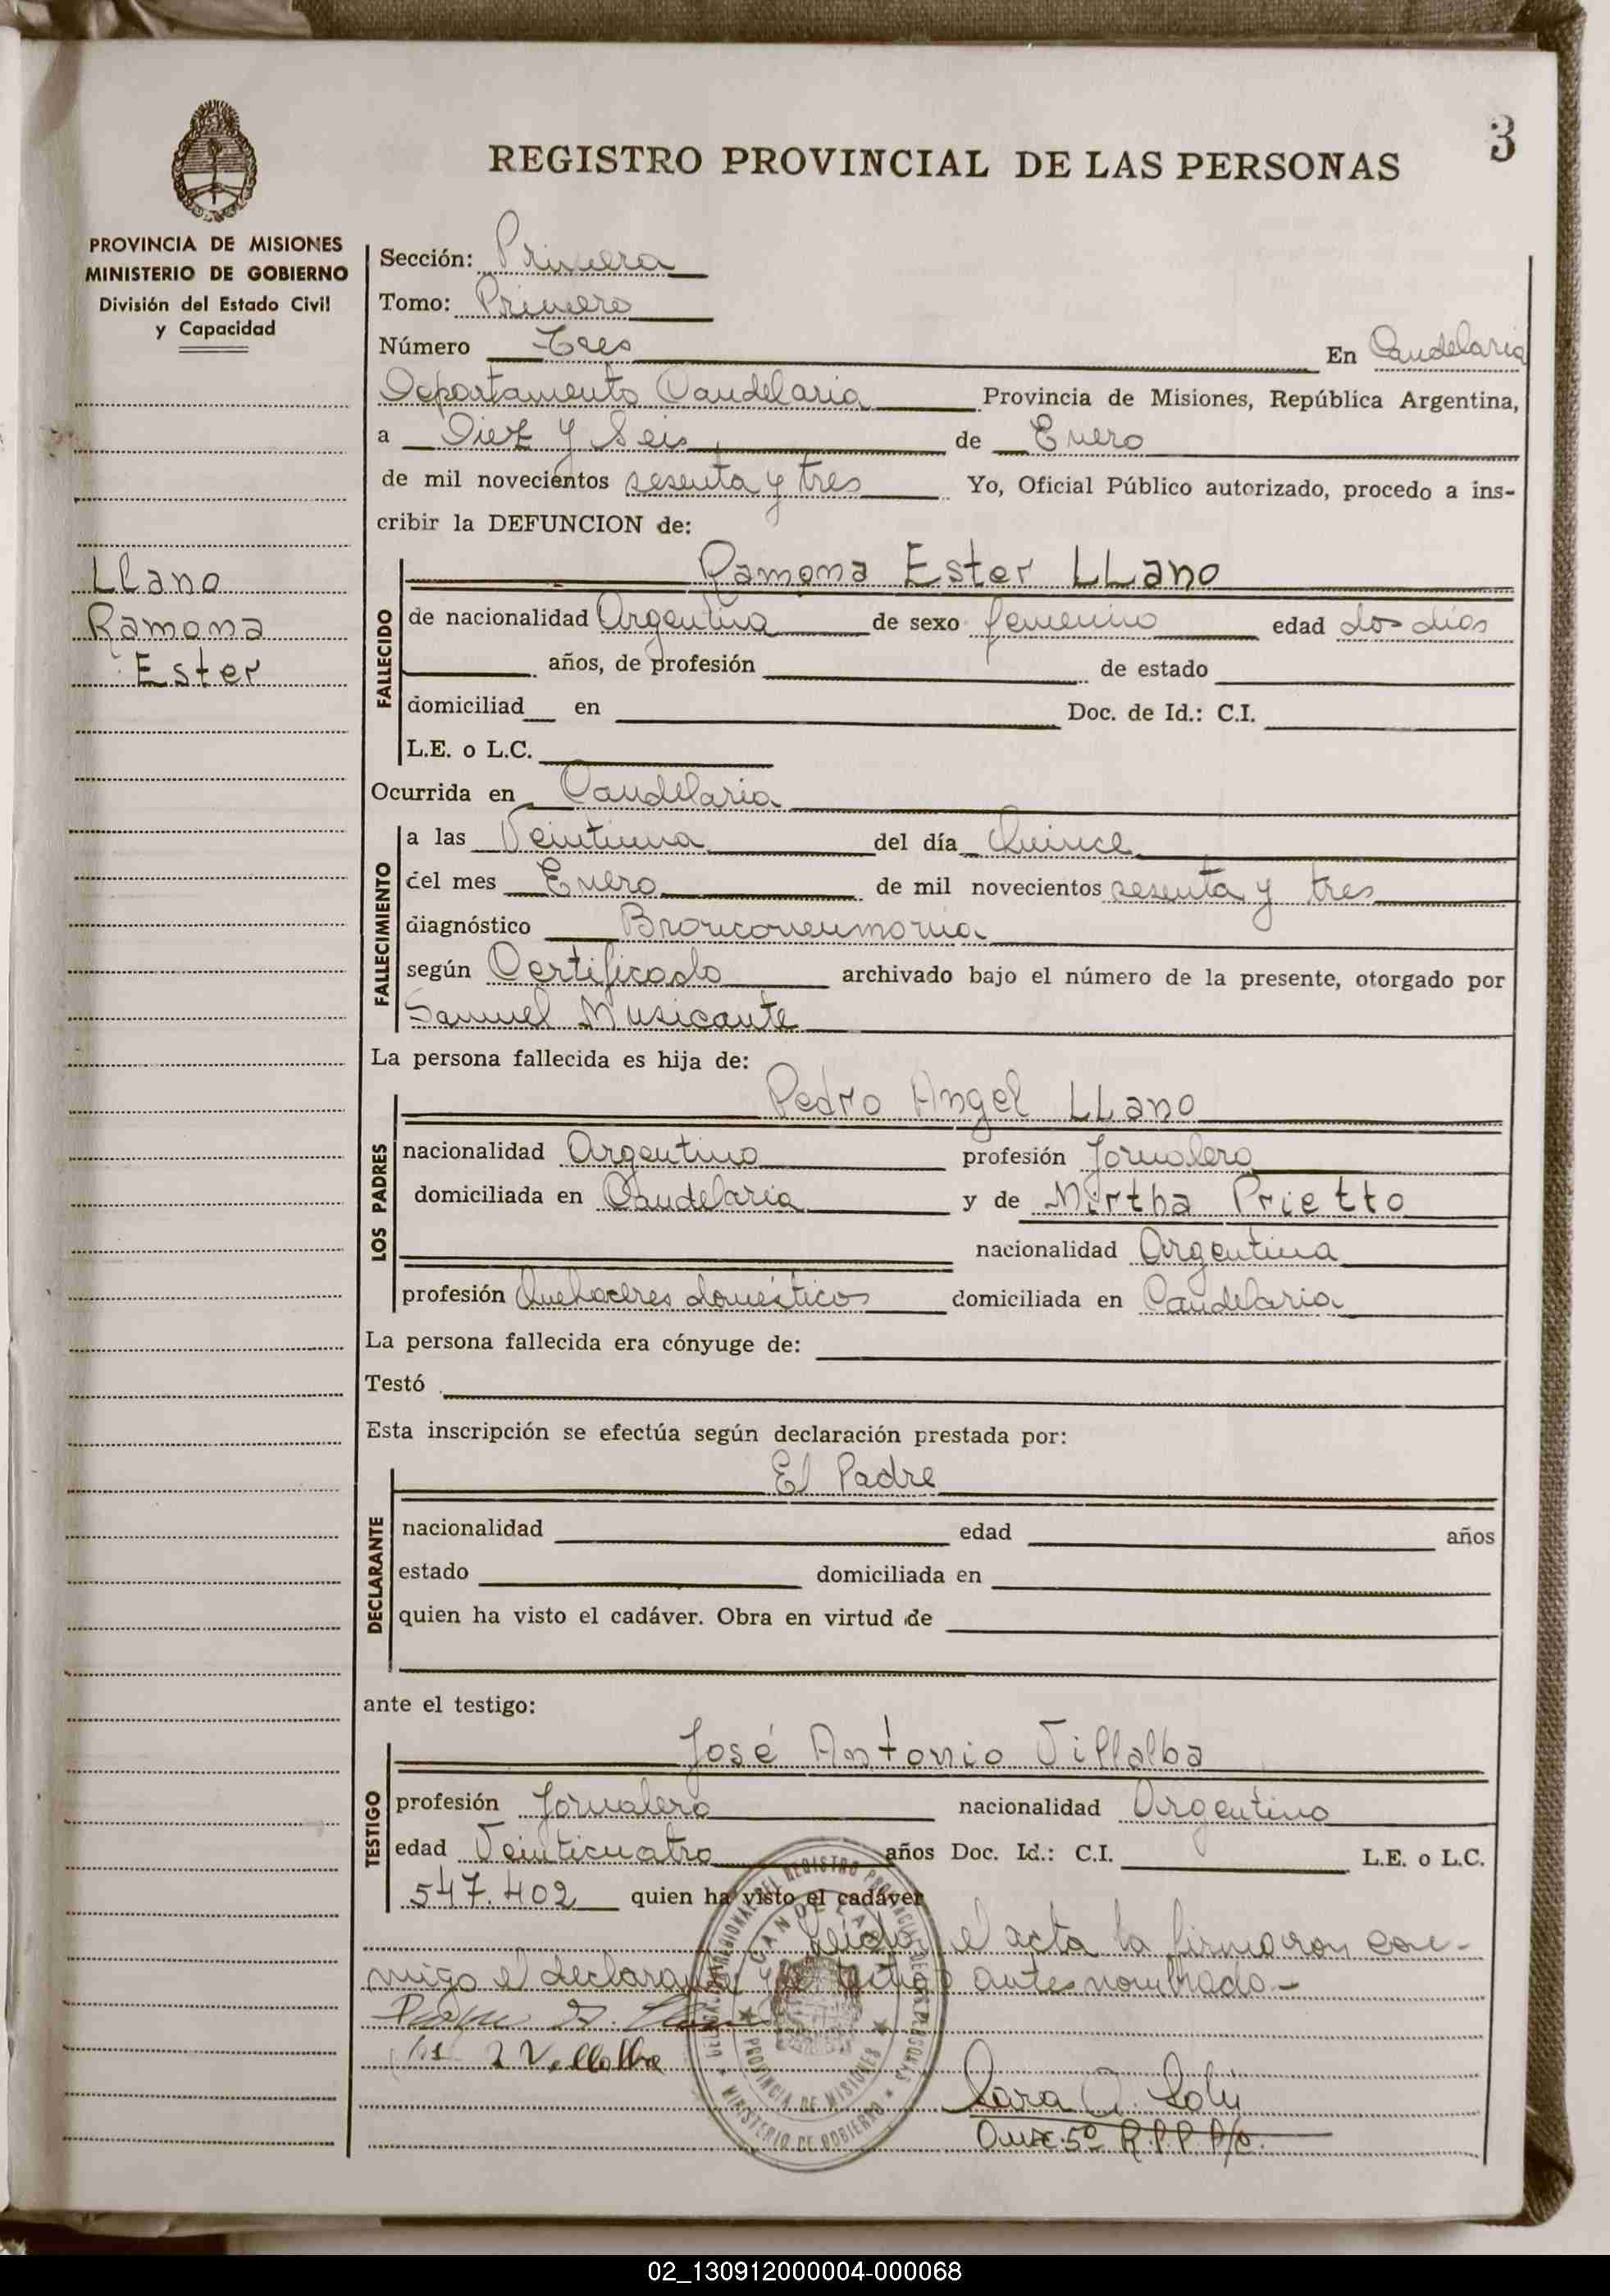 3
REGISTRO PROVINCIAL DE LAS PERSONAS
PROVINCIA DE MISIONES
MINISTERIO DE GOBIERNO
División del Estado Civil
y Capacidad
Llano
Ramona
Ester
Sección: Primera
Tomo: Primero
Número Tres En Candelaria
Departamento Candelaria Provincia de Misiones, República Argentina,
a Diez y Seis de Enero
de mil novecientos sesenta y tres Yo, Oficial Público autorizado, procedo a ins-
cribir la DEFUNCION de:
FALLECIDO
Ramona Ester LLano
de nacionalidad Argentina de sexo femenino edad dos días
años, de profesión de estado
domiciliad en Doc. de Id.: C.I.
L.E. o L.C.
Ocurrida en Candelaria
FALLECIMIENTO
a las Veintiuna del día Quince
del mes Enero de mil novecientos sesenta y tres
diagnóstico Bronconeumonia
según Certificado archivado bajo el número de la presente, otorgado por
Samuel Musicante
La persona fallecida es hija de:
LOS PADRES
Pedro Angel LLano
nacionalidad Argentino profesión Jornalero
domiciliada en Candelaria y de Mirtha Prietto
nacionalidad Argentina
profesión Quehaceres domésticos domiciliada en Candelaria
La persona fallecida era cónyuge de:
Testó
Esta inscripción se efectúa según declaración prestada por:
DECLARANTE
El Padre
nacionalidad edad años
estado domiciliada en
quien ha visto el cadáver. Obra en virtud de
ante el testigo:
TESTIGO
José Antonio Villalba
profesión Jornalero nacionalidad Argentino
edad Veinticuatro años Doc. Id.: C.I. L.E. o L.C.
547.402 quien ha visto el cadáver
Leída el acta la firmaron con-
migo el declarante y el testigo antes nombrado.-
A.
Villalba
Sara
5º
CANDELARIA
PROVINCIA DE MISIONES
MINISTERIO DE GOBIERNO
02_130912000004-000068